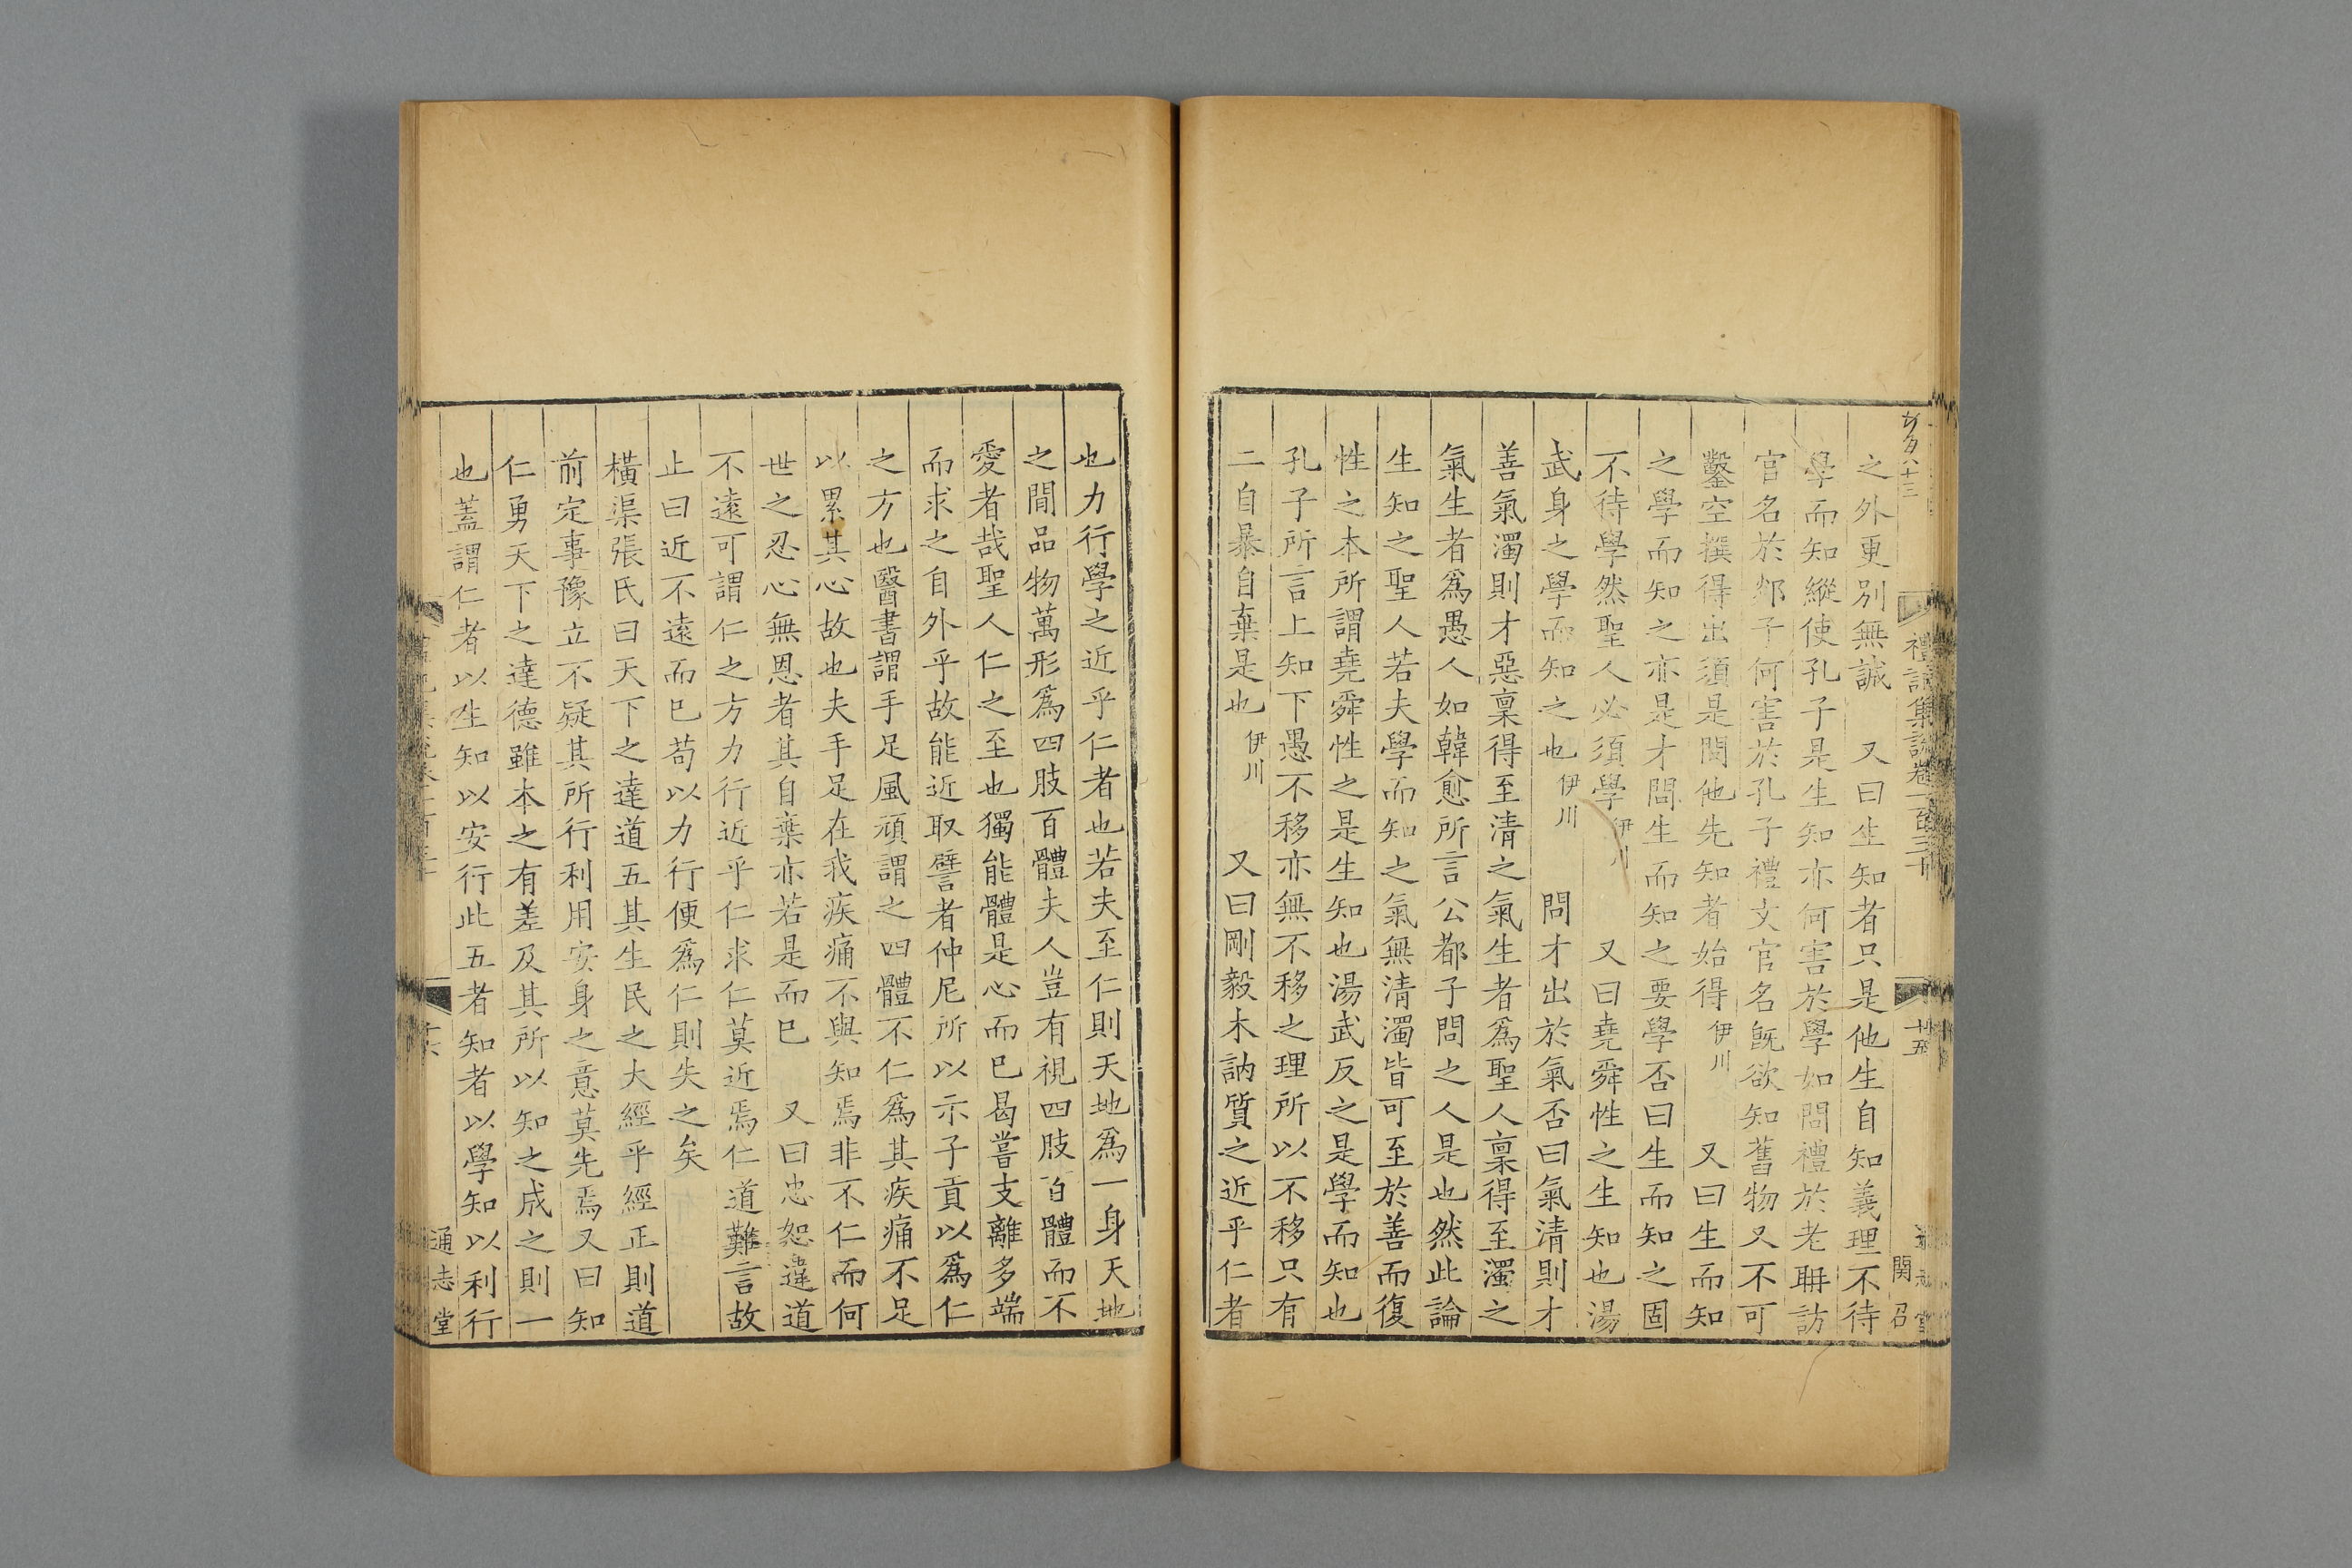 之外更別無誠　又曰生知者只是他生自知義理不待
學而知縱使孔子是生知亦何害於學如問禮於老聃訪
官名於郯子何害於孔子禮文官名旣欲知舊物又不可
鑿空撰得出須是問他先知者始得伊川　又曰生而知
之學而知之亦是才問生而知之要學否曰生而知之固
不待學然聖人必須學伊川　又曰堯舜性之生知也湯
武身之學而知之也伊川　問才出於氣否曰氣清則才
善氣濁則才惡稟得至清之氣生者爲聖人稟得至濁之
氣生者爲愚人如韓愈所言公都子問之人是也然此論
生知之聖人若夫學而知之氣無清濁皆可至於善而復
性之本所謂堯舜性之是生知也湯武反之是學而知也
孔子所言上知下愚不移亦無不移之理所以不移只有
二自暴自棄是也伊川　又曰剛毅木訥質之近乎仁者
也力行學之近乎仁者也若夫至仁則天地爲一身天地
之間品物萬形爲四肢百體夫人豈有視四肢百體而不
愛者哉聖人仁之至也獨能體是心而已曷嘗支離多端
而求之自外乎故能近取譬者仲尼所以示子貢以爲仁
之方也醫書謂手足風頑謂之四體不仁爲其疾痛不足
以累其心故也夫手足在我疾痛不與知焉非不仁而何
世之忍心無恩者其自棄亦若是而已　又曰忠恕違道
不遠可謂仁之方力行近乎仁求仁莫近焉仁道難言故
止曰近不遠而已苟以力行便爲仁則失之矣
橫渠張氏曰天下之達道五其生民之大經乎經正則道
前定事豫立不疑其所行利用安身之意莫先焉又曰知
仁勇天下之達德雖本之有差及其所以知之成之則一
也蓋謂仁者以生知以安行此五者知者以學知以利行
禮記集說卷一百三十
廿五
関召
通志堂